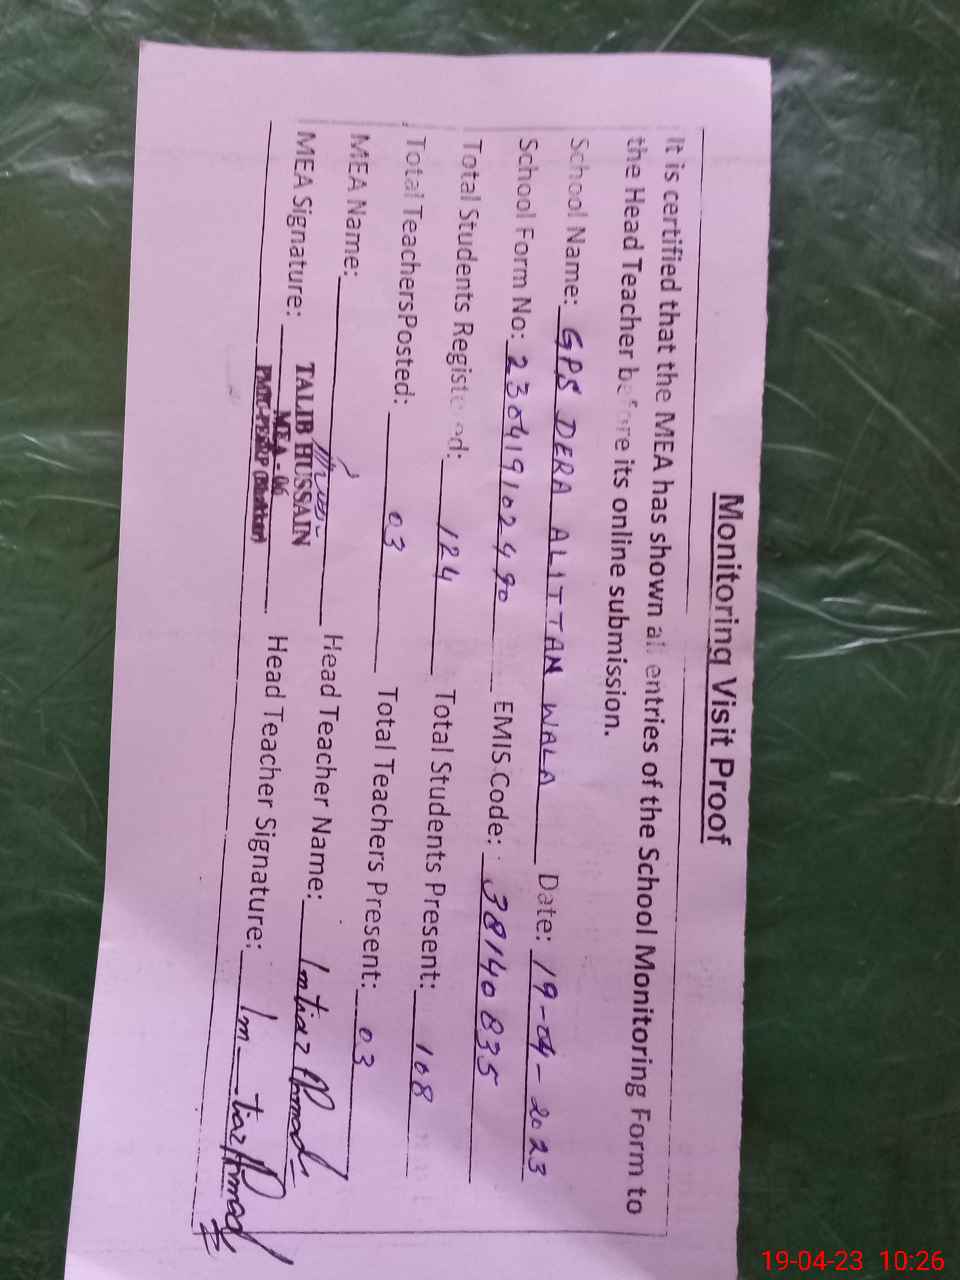 Monitoring Visit Proof
It is certified that the MEA has shown all entries of the School Monitoring Form to
the Head Teacher before its online submission.
School Name: GPS DERA ALITTAN WALA Date: 19-04-2023
School Form No: 230419102490 EMIS Code: 38140835
Total Students Registered: 124 Total Students Present: 108
Total TeachersPosted: 03 Total Teachers Present: 03
MEA Name: Head Teacher Name: Imtiaz Ahmad
MEA Signature: TALIB HUSSAIN Head Teacher Signature: Imtiaz Ahmad
MEA-06
19-04-23 10:26